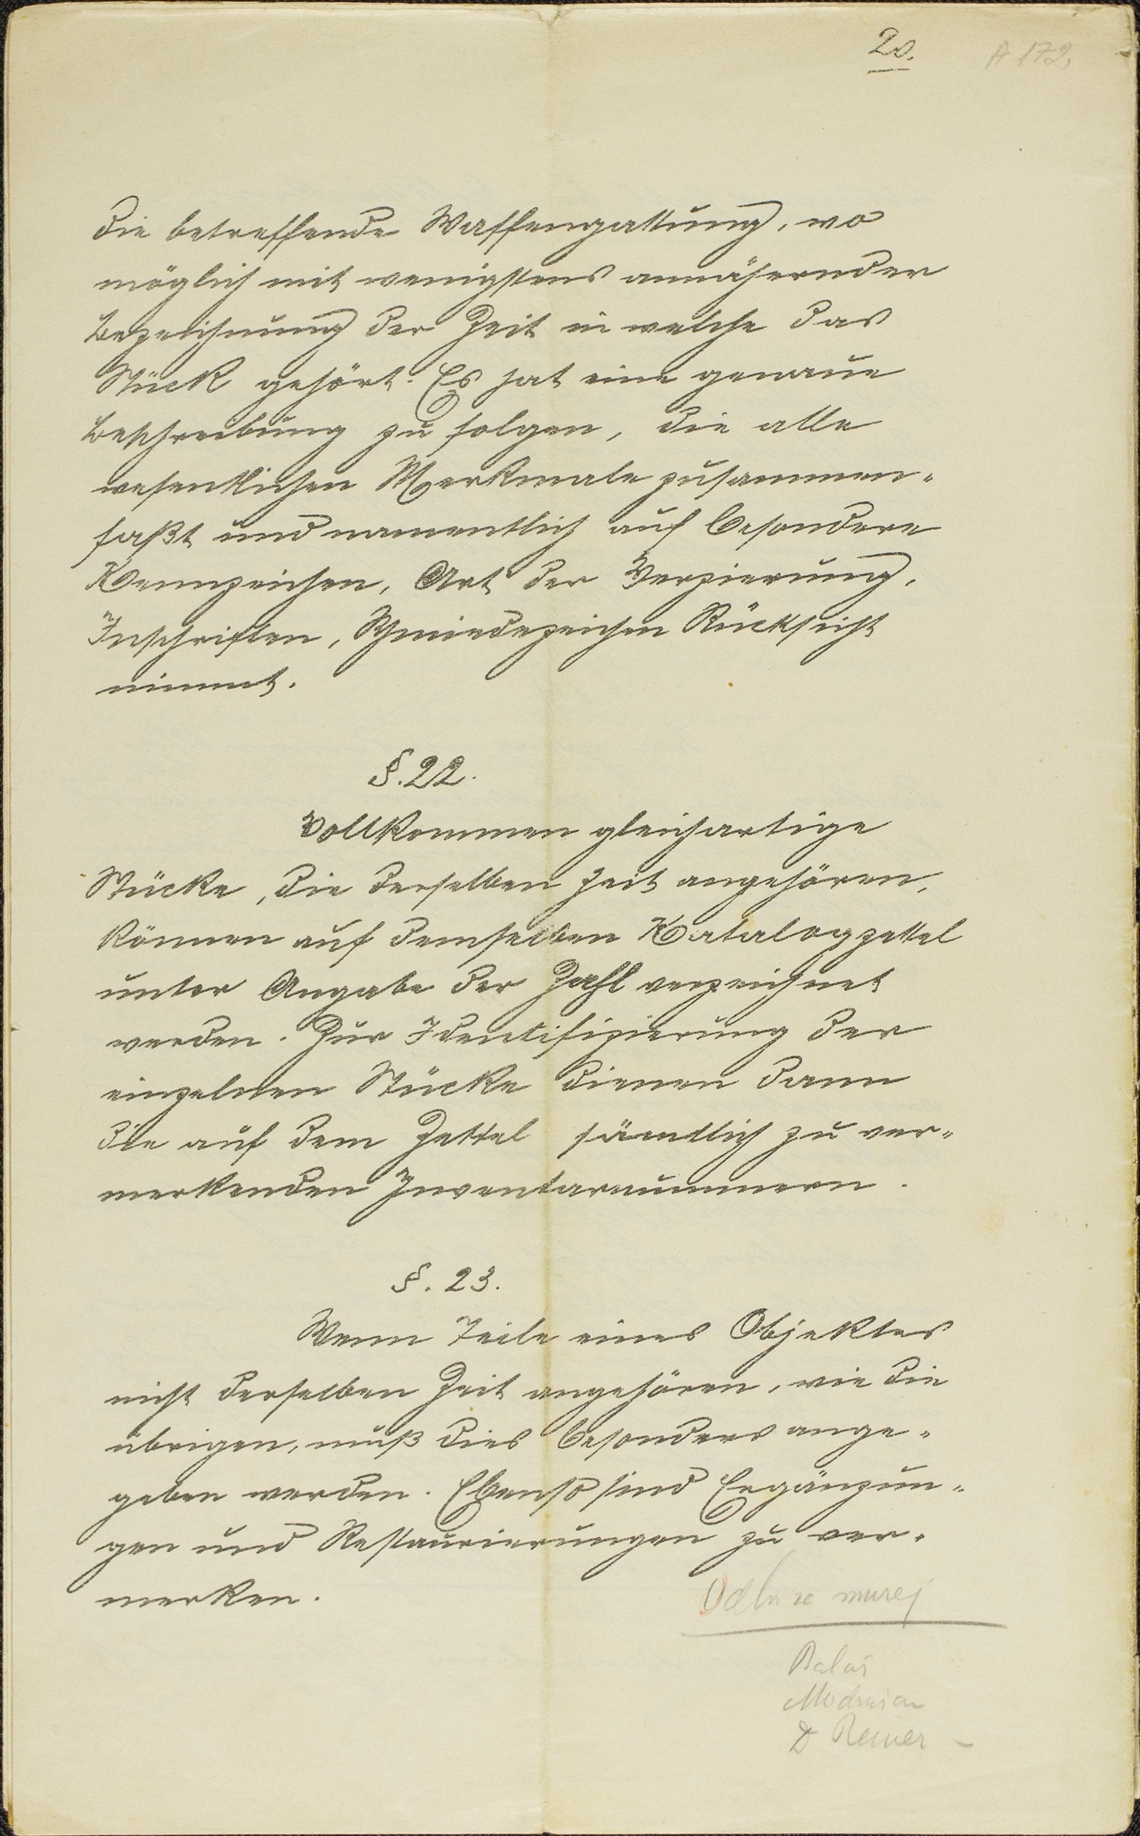 20.
A 172
die betreffende Waffengattung, wo
möglich mit wenigstens annähernder
Bezeichnung der Zeit in welche das
Stück gehört. Es hat eine genaue
Beschreibung zu folgen, die alle
wesentlichen Merkmale zusammen-
faßt und namentlich auf besondere
Kennzeichen, Art der Verzierung,
Inschriften, Schmiedezeichen Rücksicht
nimmt.
§. 22.
Vollkommen gleichartige
Stücke, die derselben Zeit angehören,
können auf demselben Katalogzettel
unter Angabe der Zahl verzeichnet
werden. Zur Identifizierung der
einzelnen Stücke dienen dann
die auf dem Zettel sämtlich zu ver-
merkenden Inventarnummern.
§. 23.
Wenn Teile eines Objektes
nicht derselben Zeit angehören, wie die
übrigen, muß dies besonders ange-
geben werden. Ebenso sind Ergänzun-
gen und Restaurierungen zu ver-
merken.
za muzej